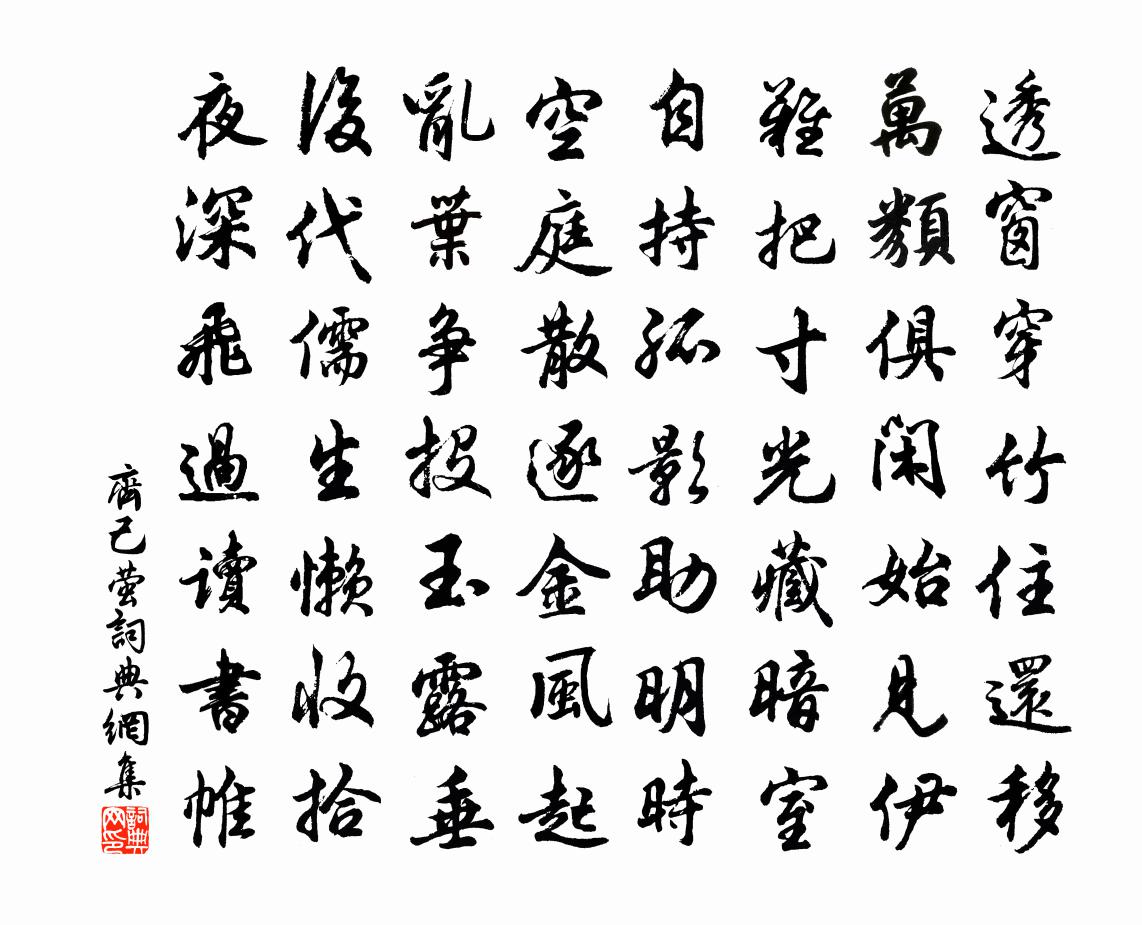 透窗穿竹住還移
萬類俱閑始見伊
難把寸光藏暗室
自持孤影助明時
空庭散逐金風起
亂葉争投玉露垂
後代儒生懶收拾
夜深飛過讀書帷
齊己螢詞典網集
詞典网印